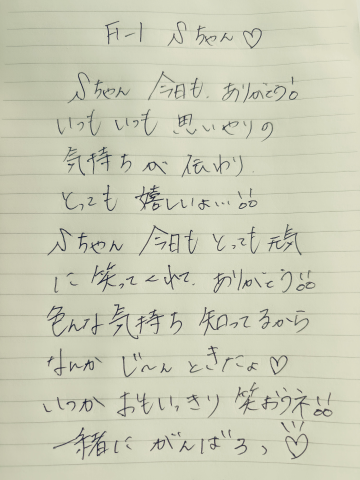 Fトl Sちゃん♡
Sちゃん 今日も、ありがとう!!
いつも いつも 思いやりの
気持ちが 伝わり
とっても 嬉しいよ…!!
Sちゃん 今日も とっても 元気
に 笑ってくれて、ありがとう!!
色んな気持ち 知ってるから
なんか じ〜んときたよ♡
いつか おもいっきり 笑おうネ!!
一緒に がんばろっ♡